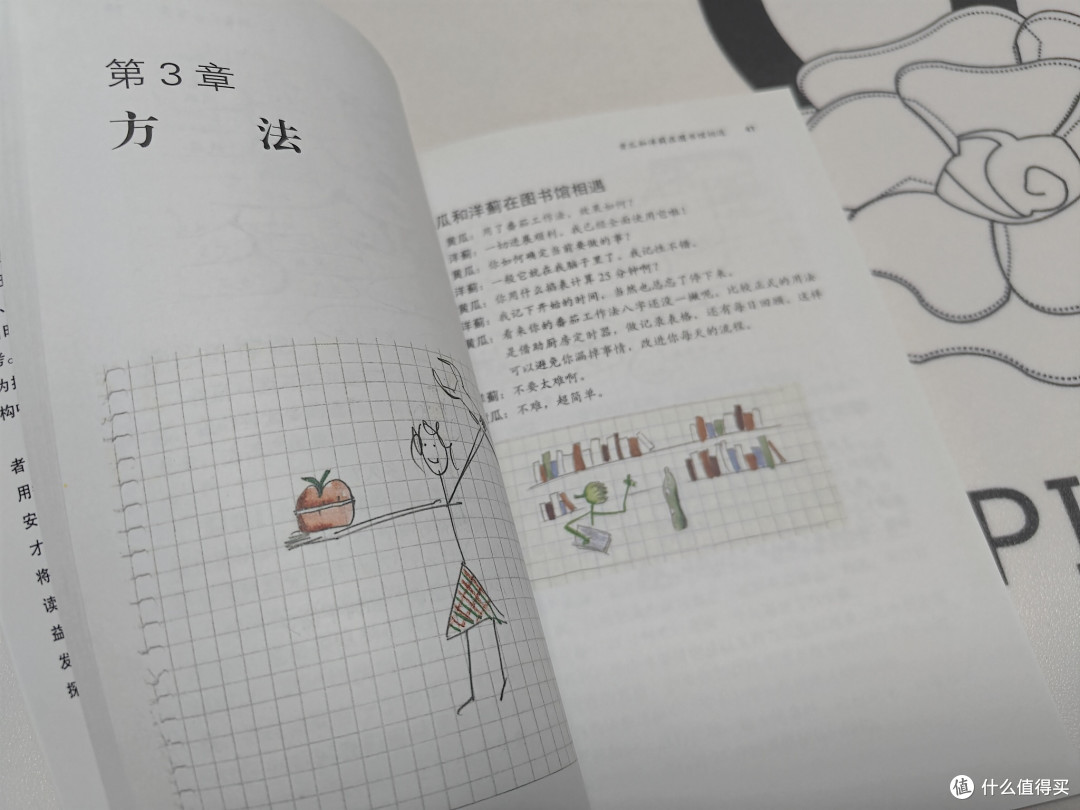 第3章
方 法
者
用
安
才
将
读
益
发
黄瓜和洋蓟在图书馆相遇 41
瓜和洋蓟在图书馆相遇
黄瓜：用了番茄工作法，效果如何？
洋蓟：一切进展顺利，我已经全面使用它啦！
黄瓜：你如何确定当前要做的事？
洋蓟：一般它就在我脑子里了，我记性不错。
黄瓜：你用什么钟表计算25分钟啊？
洋蓟：我记下开始的时间。当然也总忘了停下来。
黄瓜：看来你的番茄工作法八字还没一撇呢，比较正式的用法
是借助厨房定时器，做记录表格，还有每日回顾。这样
可以避免你漏掉事情，改进你每天的流程。
洋蓟：不要太难啊。
瓜：不难，超简单。
PI
值 什么值得买